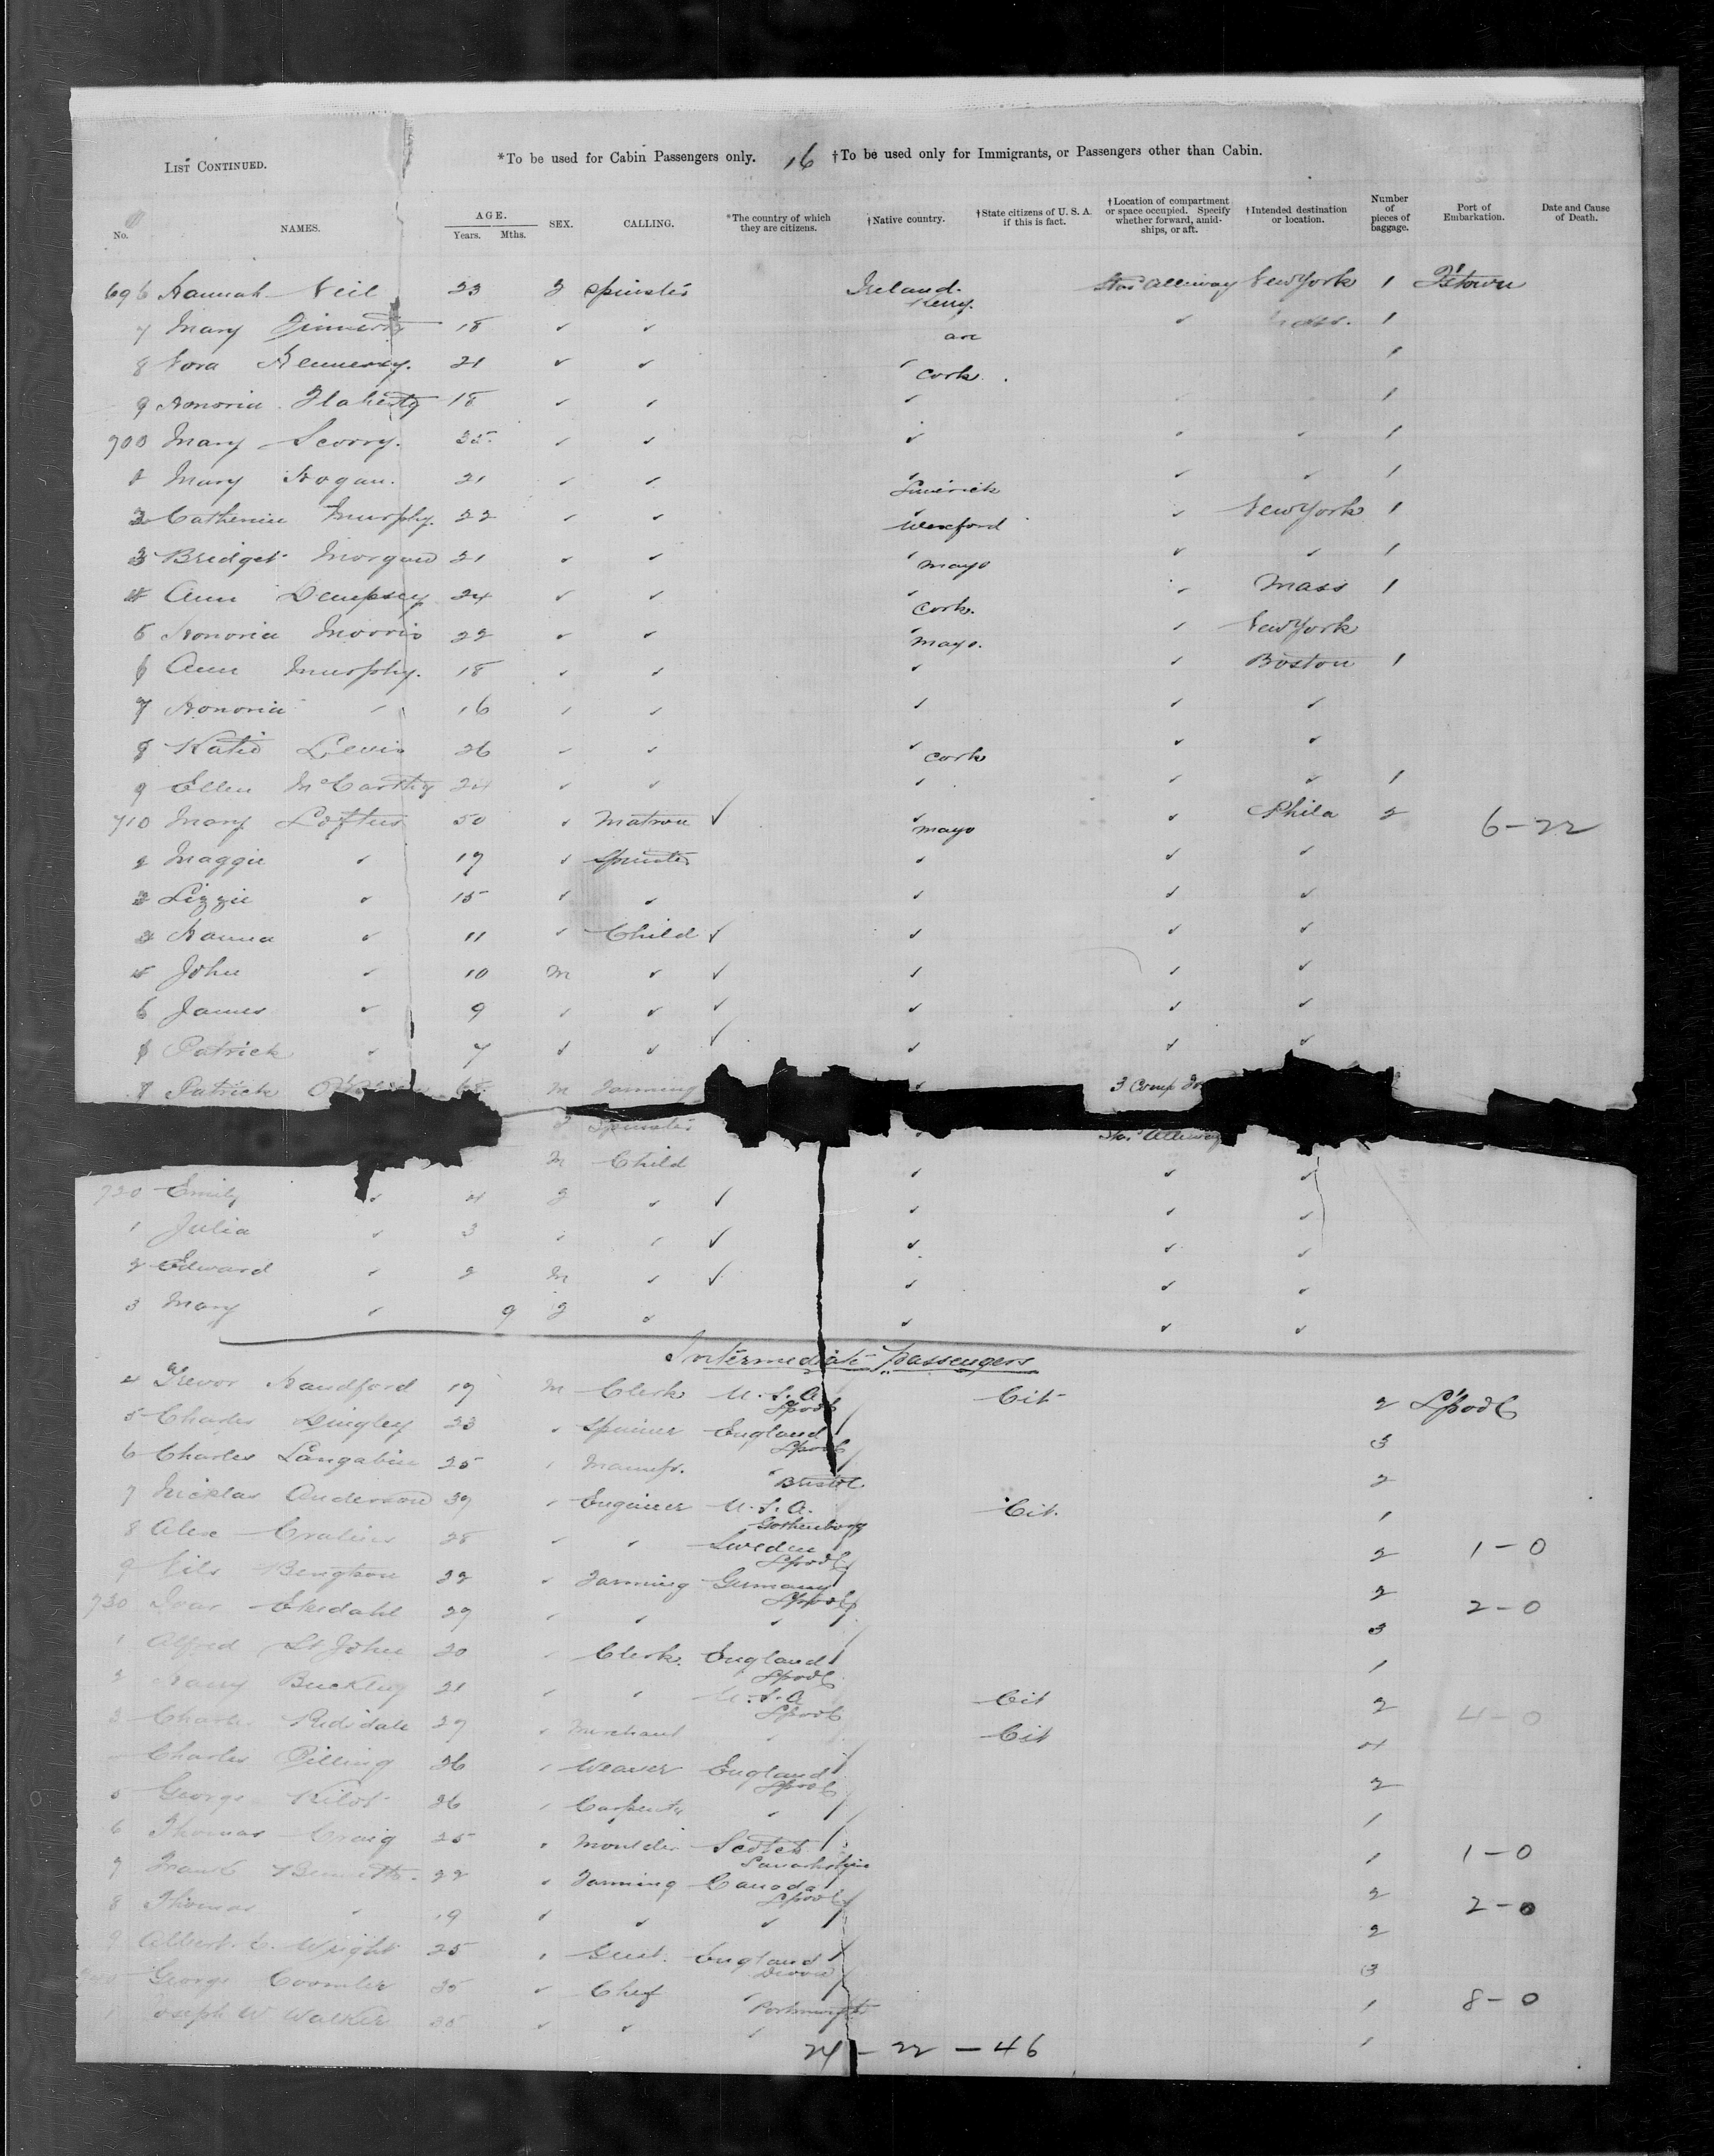 LIST CONTINUED.
*To be used for Cabin Passengers only. 16 †To be used only for Immigrants, or Passengers other than Cabin.
No. NAMES. AGE. Years. Mths. SEX. CALLING. *The country of which they are citizens. †Native country. †State citizens of U. S. A. if this is fact. †Location of compartment or space occupied. Specify whether forward, amidships, or aft. †Intended destination or location. Number of pieces of baggage. Port of Embarkation. Date and Cause of Death.
696 Hannah Neil 23 F Spinster Ireland Kerry. Star Alleway New York 1 Q'stown
7 Mary 18 ✓ ✓ ✓ Mass. 1
8 Nora Kennedy. 21 ✓ ✓ ✓ Cork. 1
9 Honoria Flaherty 18 ✓ ✓ ✓ 1
700 Mary Scorry. 35 ✓ ✓ ✓ ✓ ✓ 1
Mary Hogan. 21 ✓ ✓ ✓ Limerick ✓ ✓ 1
2 Catherine Murphy. 22 ✓ ✓ ✓ Wexford ✓ New York 1
3 Bridget 21 ✓ ✓ ✓ Mayo ✓ ✓ 1
4 Ann Dempsey 24 ✓ ✓ ✓ Cork. ✓ Mass 1
5 Honoria Morris 22 ✓ ✓ ✓ Mayo. ✓ New York
6 Ann Murphy. 18 ✓ ✓ ✓ ✓ Boston 1
7 Honoria ✓ 16 ✓ ✓ ✓ ✓ ✓
8 Katie Levis 26 ✓ ✓ ✓ Cork ✓ ✓
9 Ellen McCarthy 24 ✓ ✓ ✓ ✓ ✓ 1
710 Mary Loftus 50 ✓ Matron ✓ ✓ Mayo ✓ Phila 2 6-22
2 Maggie ✓ 17 ✓ Spinster ✓ ✓ ✓
3 Lizzie ✓ 15 ✓ ✓ ✓ ✓ ✓
Hanna ✓ 11 ✓ Child ✓ ✓ ✓ ✓
John ✓ 10 M ✓ ✓ ✓ ✓ ✓
6 James ✓ 9 ✓ ✓ ✓ ✓ ✓ ✓
Patrick ✓ 7 ✓ ✓ ✓ ✓ ✓ ✓
8 Patrick M Farming ✓ 3 Comp
F Spinster Star Alleway
M Child ✓ ✓ ✓
720 Emily ✓ 4 F ✓ ✓ ✓ ✓ ✓
1 Julia ✓ 3 ✓ ✓ ✓ ✓ ✓ ✓
2 Edward ✓ 2 M ✓ ✓ ✓ ✓ ✓
3 Mary ✓ 9 F ✓ ✓ ✓ ✓
Intermediate Passengers
4 Trevor Handford 19 M Clerk U.S.A. L'pool Cit 2 L'pool
5 Charles Dingley 23 ✓ Spinner England L'pool 3
6 Charles Langabin 25 ✓ Manufr. ✓ Bristol 2
7 Nicklas Anderson 39 ✓ Engineer U.S.A. Gothenburg Cit. 1
8 Alex 28 ✓ ✓ Sweden L'pool 2 1-0
9 Nils Bengtson 32 ✓ Farming Germany L'pool 2
730 Ivar Ekedahl 27 ✓ ✓ ✓ 3 2-0
1 Alfred St John 20 ✓ Clerk. England L'pool 1
2 Harry Buckley 21 ✓ ✓ U.S.A L'pool Cit 2
3 Charles 27 ✓ Merchant ✓ Cit 4 4-0
Charles Pilling 26 ✓ Weaver England L'pool 2
5 George 26 ✓ Carpenter ✓ 1
6 Thomas Craig 25 ✓ Moulder Scotch Lanarkshire 1 1-0
7 Frank 22 ✓ Farming Canada L'pool 2
8 Thomas ✓ 19 ✓ ✓ ✓ 2 2-0
9 Albert. E. Wright 25 ✓ Gent. England Devon 3
George Coombes 35 ✓ Chef ✓ Portsmouth 1 8-0
1 Joseph W Walker 35 ✓ ✓ ✓ 1
24 - 22 - 46